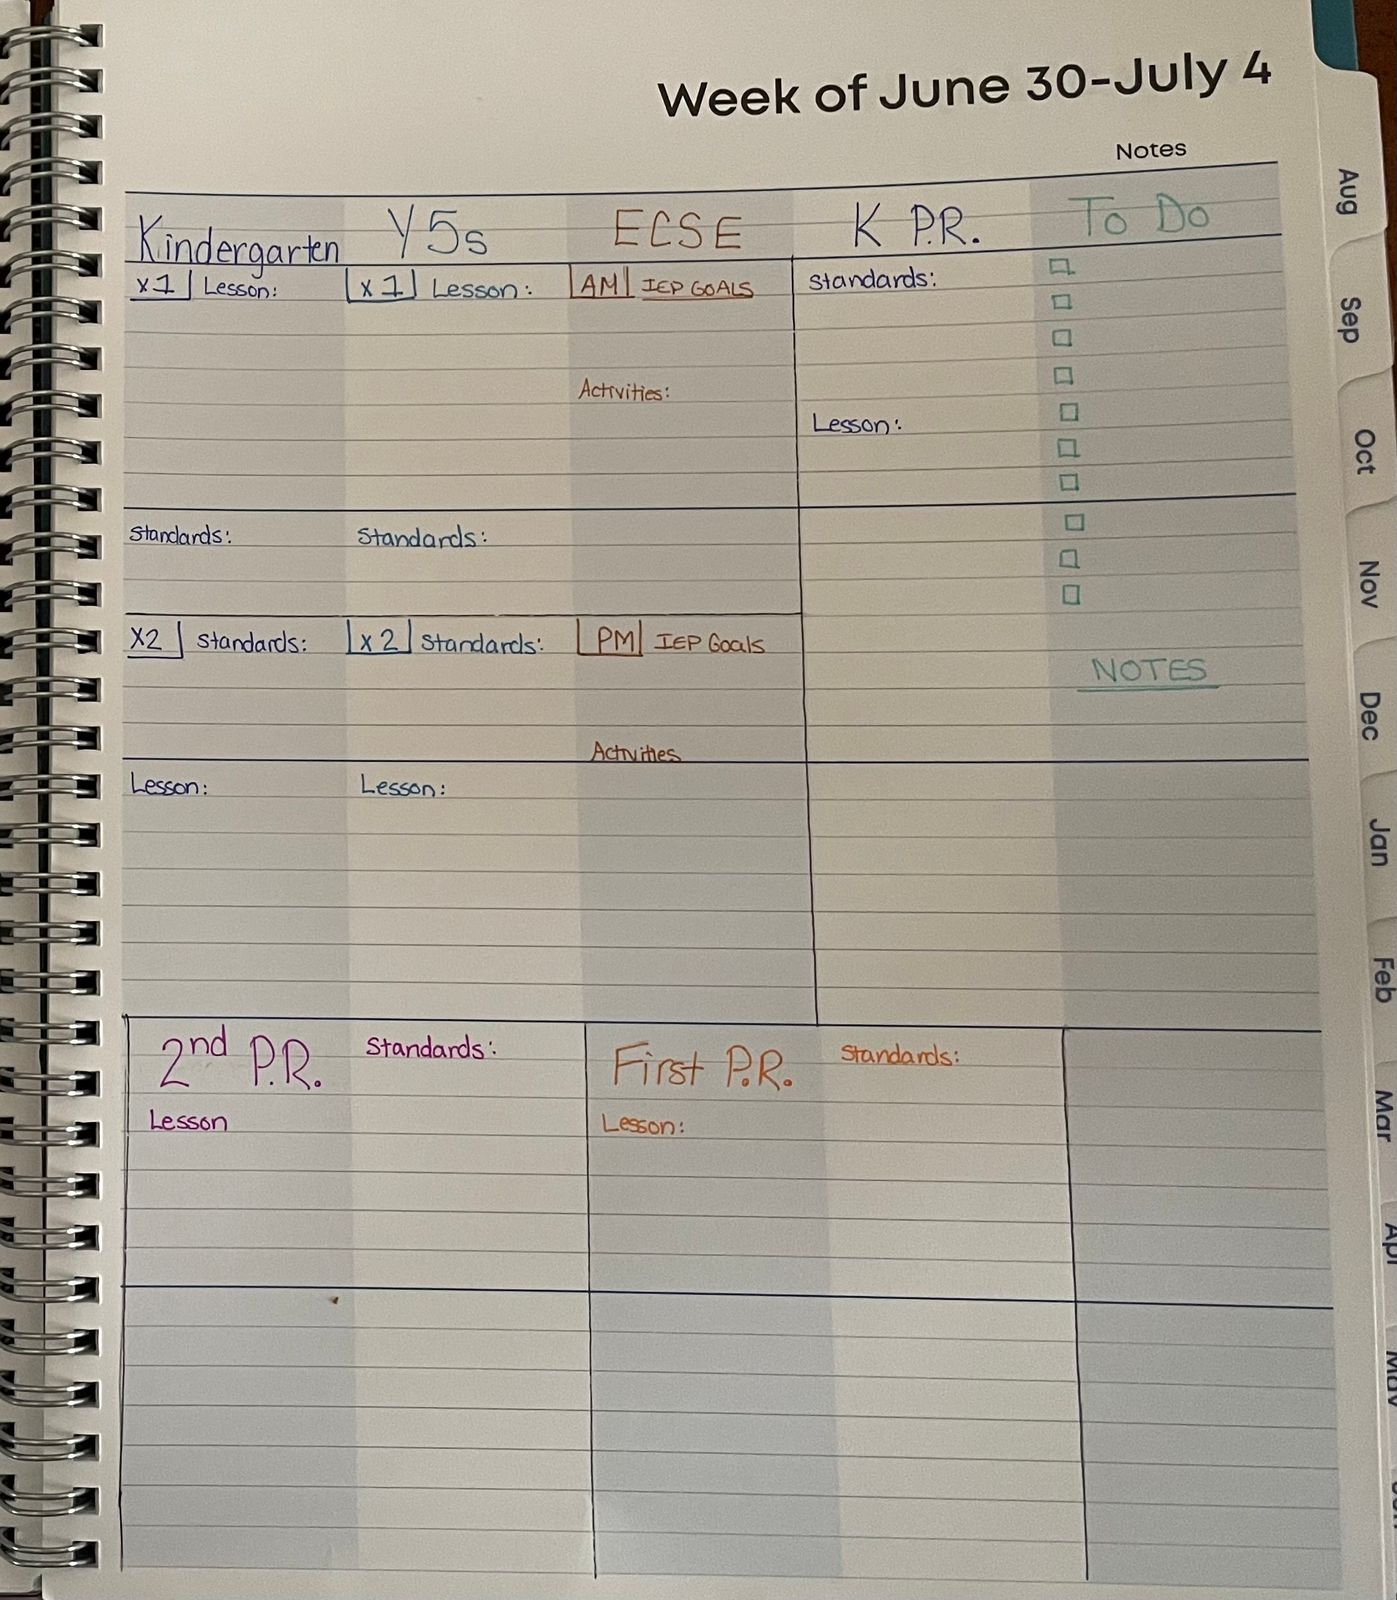 Week of June 30-July 4
Notes
Kindergarten Y5s ECSE K P.R. To Do
x1 Lesson: x1 Lesson: AM IEP GOALS standards:
Activities:
Lesson:
Standards: Standards:
X2 Standards: x2 Standards: PM IEP Goals
NOTES
Activities
Lesson: Lesson:
2nd P.R. Standards: First P.R. Standards:
Lesson Lesson:
Aug
Sep
Oct
Nov
Dec
Jan
Feb
Mar
Apr
May